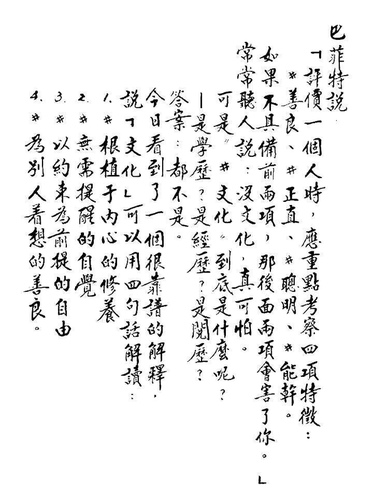 巴菲特說
「評價一個人時，應重點考察四項特徵：
※善良、※正直、※聰明、※能幹。
如果不具備前兩項，那後面兩項會害了你。」
常常聽人說：沒文化，真可怕。
可是“※文化”到底是什麼呢？
—是學歷？是經歷？是閱歷？
答案：都不是。
今日看到了一個很靠譜的解釋，
說「文化」可以用四句話解讀：
1.※根植于內心的修養
2.※無需提醒的自覺
3.※以約束為前提的自由
4.※為別人着想的善良。